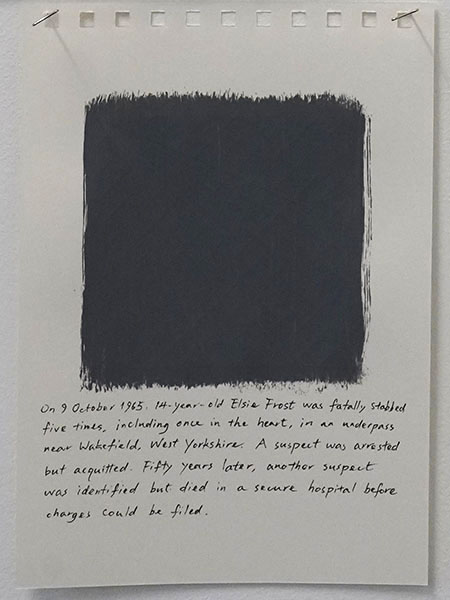 On 9 October 1965, 14-year-old Elsie Frost was fatally stabbed
five times, including once in the heart, in an underpass
near Wakefield, West Yorkshire. A suspect was arrested
but acquitted. Fifty years later, another suspect
was identified but died in a secure hospital before
charges could be filed.